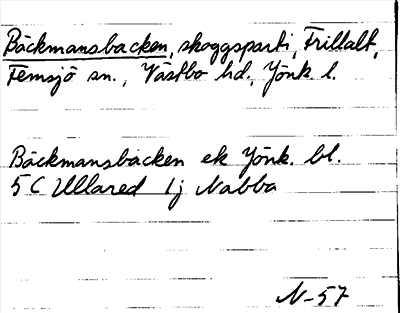 Bäckmansbacken, skoggsparti, Frillalt,
Femsjö sn., Västbo hd., Jönk. l.
Bäckmansbäcken ek Jönk. bl.
5 C Ullared 1j Nabba
N-57